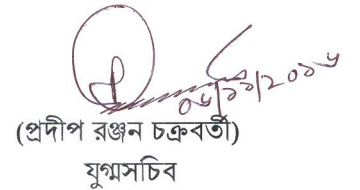 ০৬/১১/২০১৬
(প্রদীপ রঞ্জন চক্রবর্তী)
যুগ্মসচিব